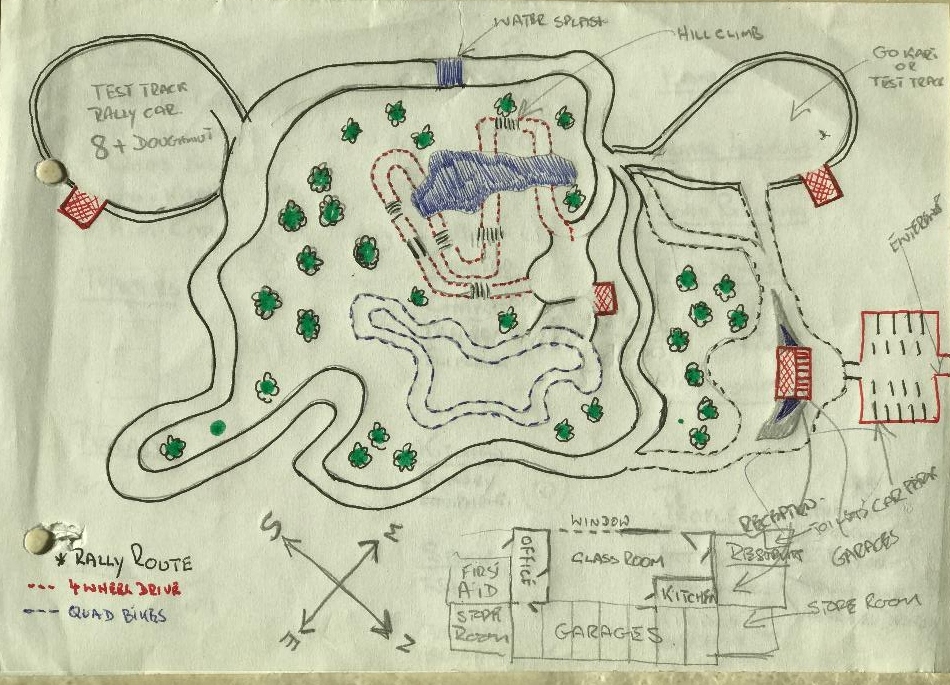 WATER SPLASH
HILL CLIMB
GO KART
OR
TEST TRACK
TEST TRACK
RALLY CAR
8 + DOUGHNUT
ENTERANCE
S
W
E
N
* RALLY ROUTE
4 WHEEL DRIVE
QUAD BIKES
WINDOW
OFFICE
CLASS ROOM
KITCHEN
FIRST
AID
STORE
ROOM
GARAGES
RECEPTION
TOILETS
CAR PARK
GARAGES
STORE ROOM